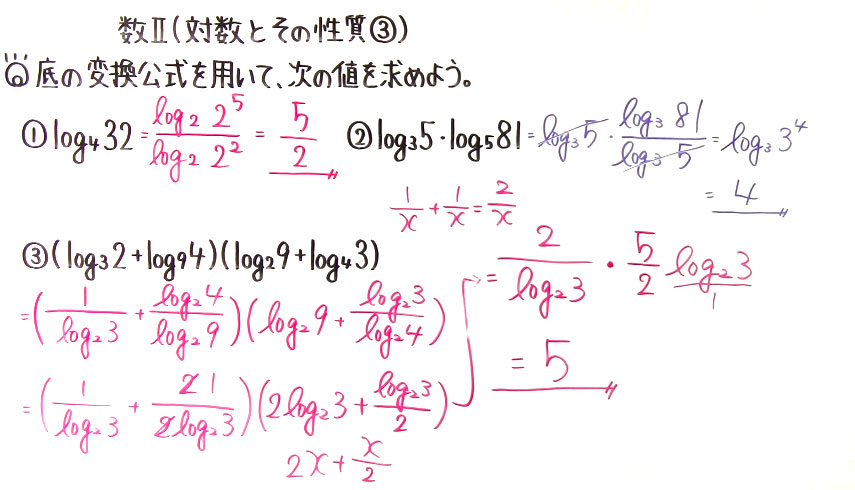 数Ⅱ(対数とその性質③)
◎底の変換公式を用いて、次の値を求めよう。
① log₄32 = log₂ 2⁵ / log₂ 2² = 5/2
② log₃5・log₅81 = log₃5・log₃ 81 / log₃ 5 = log₃ 3⁴
= 4
1/x + 1/x = 2/x
③ (log₃2 + log₉4)(log₂9 + log₄3)
= (1/log₂3 + log₂4/log₂9)(log₂9 + log₂3/log₂4)
= (1/log₂3 + 2 1/2log₂3)(2log₂3 + log₂3/2)
2x + x/2
= 2/log₂3 ・ 5/2 log₂3
1
= 5